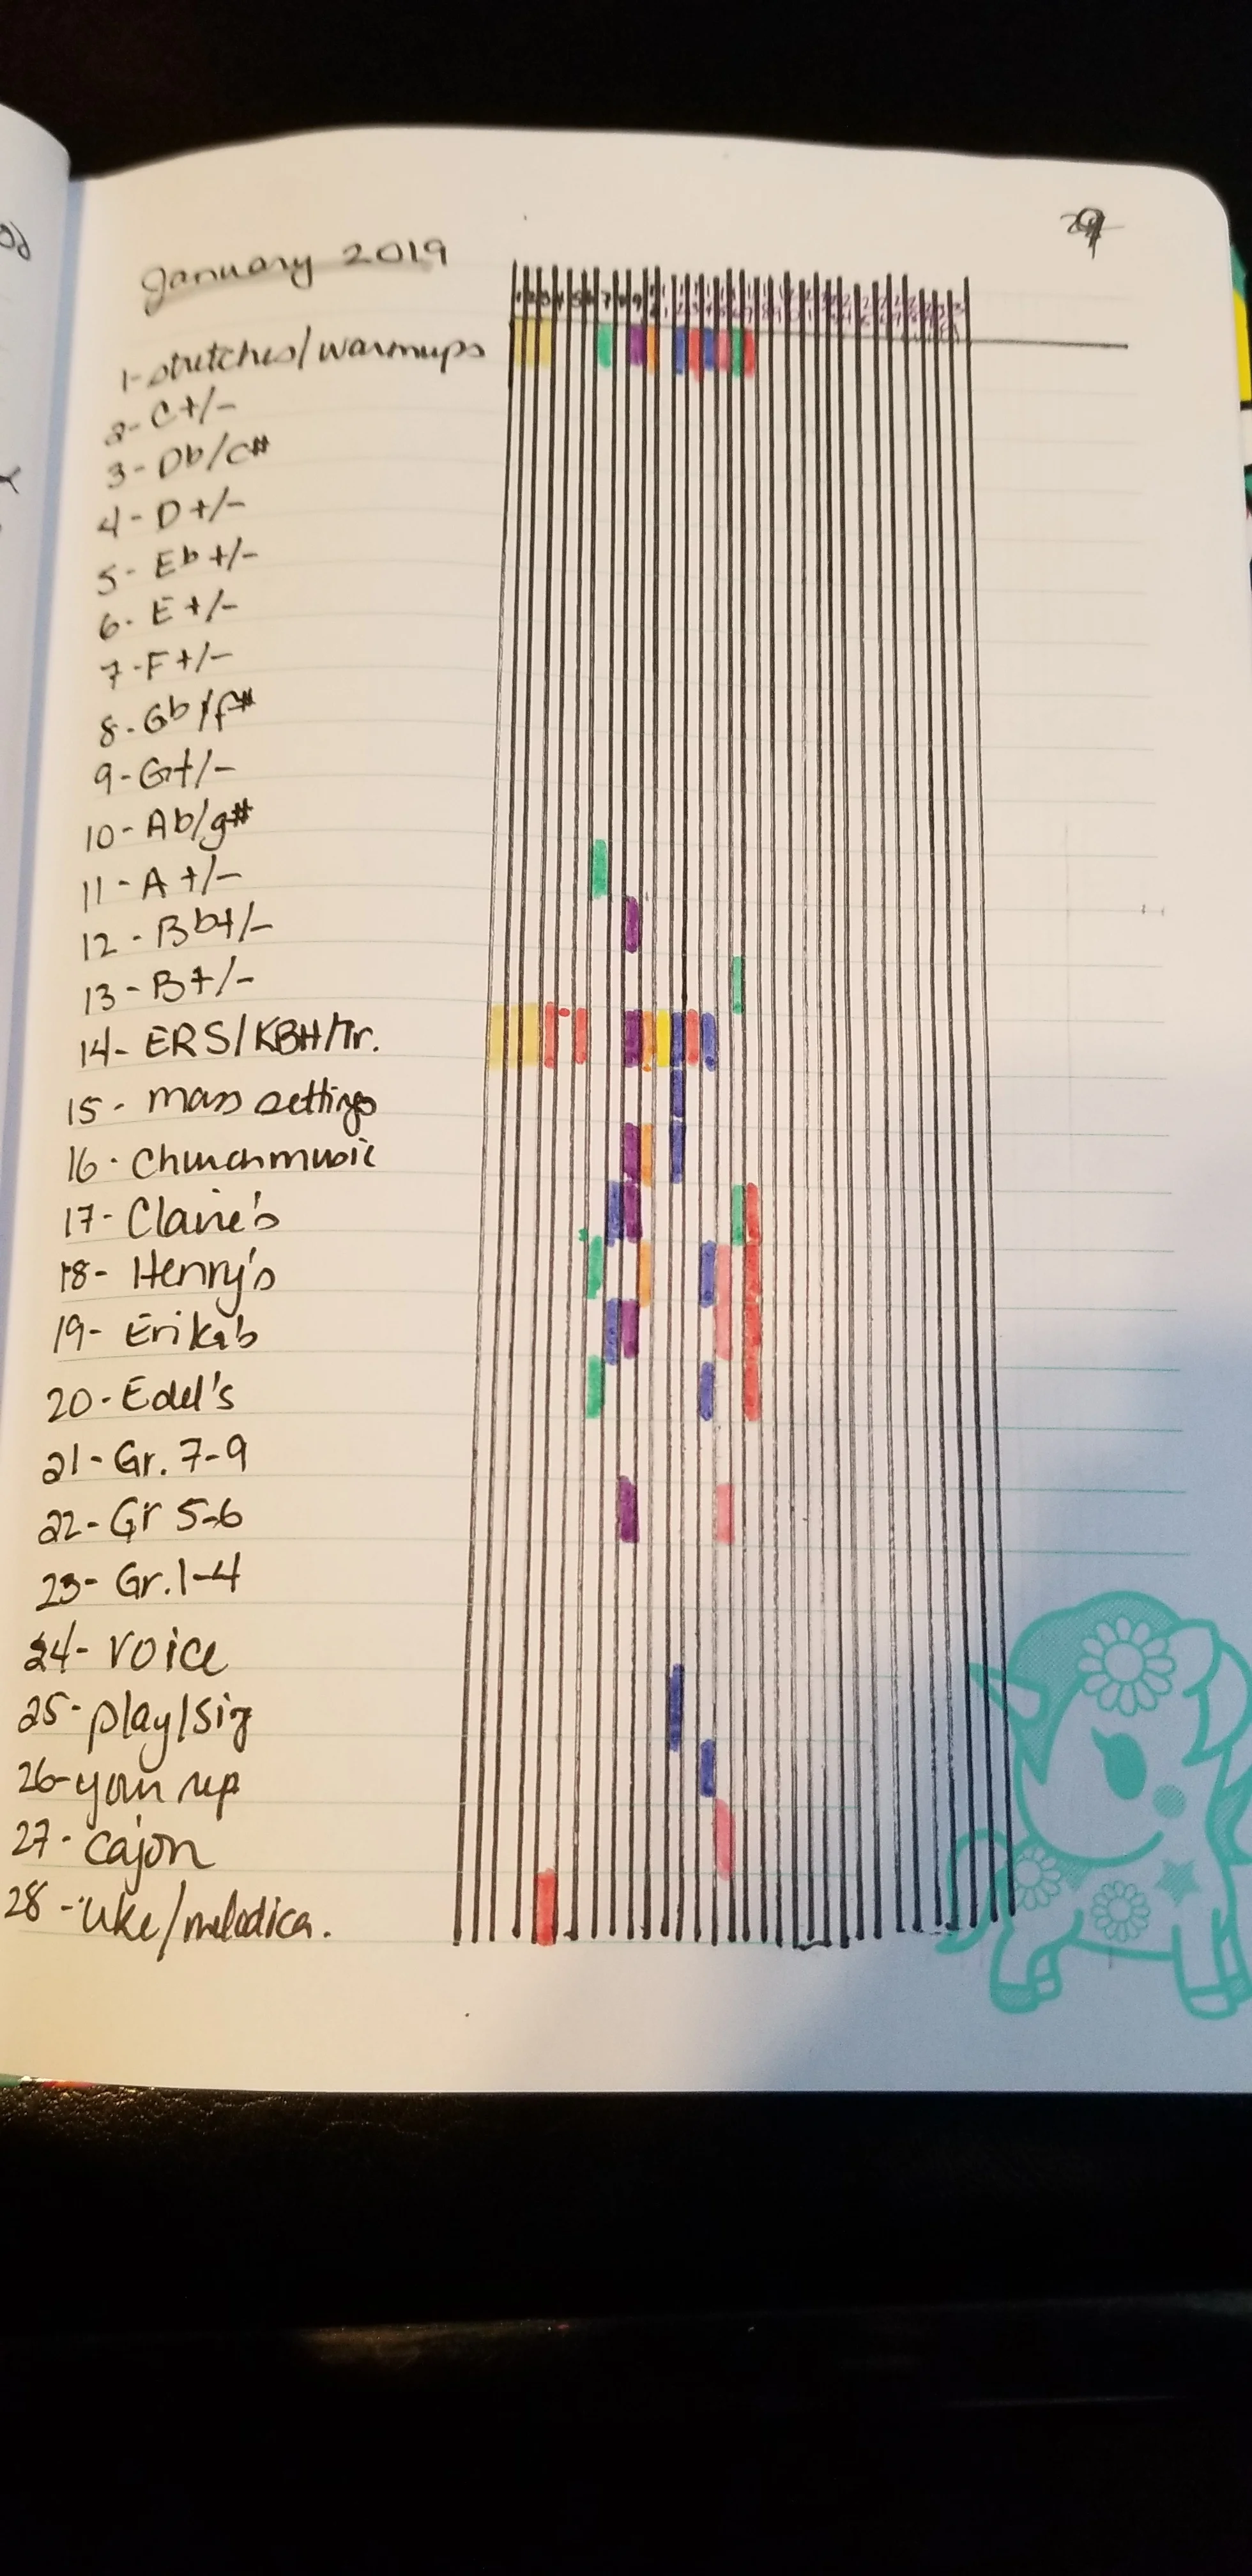 January 2019
1-stretches/warmups
2- C+/-
3- Db/c#
4- D+/-
5- Eb+/-
6- E+/-
7-F+/-
8-Gb/f#
9-G+/-
10-Ab/g#
11-A+/-
12-Bb+/-
13-B+/-
14- ERS/KBH/Tr.
15- mass settings
16-Church music
17- Claire's
18- Henry's
19- Erika's
20-Edel's
21-Gr. 7-9
22-Gr 5-6
23-Gr.1-4
24- Voice
25-play/sig
26-your rep
27- cajon
28-uke/melodica.